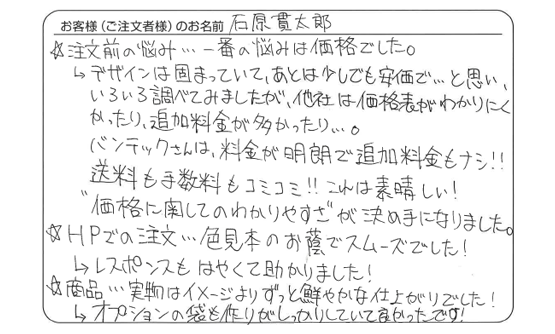 お客様（ご注文者様）のお名前 石原貫太郎
☆注文前の悩み…一番の悩みは価格でした。
↳デザインは固まっていて、あとは少しでも安価で…と思い、
いろいろ調べてみましたが、他社は価格表がわかりにく
かったり、追加料金が多かったり…。
バンテックさんは、料金が明朗で追加料金もナシ!!
送料も手数料もコミコミ!!これは素晴しい!
"価格に関してのわかりやすさ"が決め手になりました。
☆HPでの注文…色見本のお蔭でスムーズでした!
↳レスポンスもはやくて助かりました!
☆商品…実物はイメージよりずっと鮮やかな仕上がりでした!
↳オプションの袋も作りがしっかりしていて良かったです!